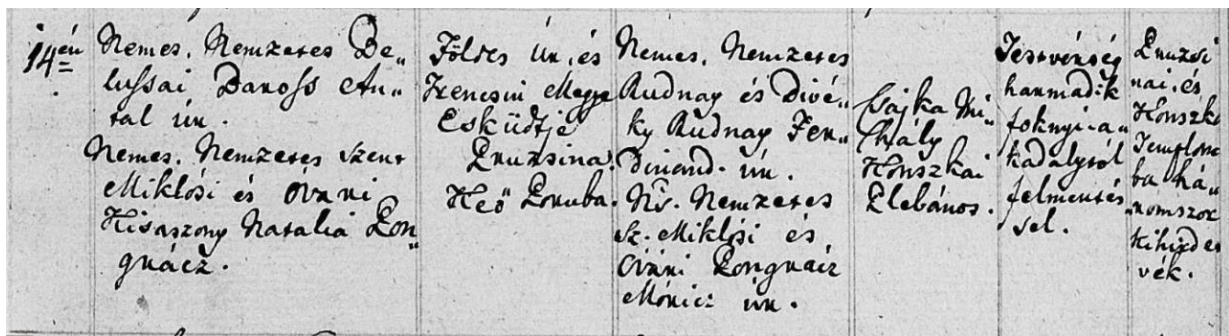 14én
Nemes, Nemzetes Be„
lussai Baross An„
tal úr.
Nemes, Nemzetes Szent
Miklósi és Óvári
Kisaszony Natalia Pon„
grácz.
Földes Úr, és
Trencsin Megye
Esküdtje
Pruzsina.
Heö Poruba.
Nemes, Nemzetes
Rudnay és Divé„
ky Rudnay Fer„
dinand úr.
Ns. Nemzetes
Sz. Miklósi és
Óvári Pongrácz
Móricz úr.
Csajka Mi„
hály
Konszkai
Plebános.
Testvérség
harmadik
foknyi-a„
kadalytól
felmentés„
sel.
Pruzsi
nai, és
Konszk
Templom
ba há„
romszor
kihirdet
vék.